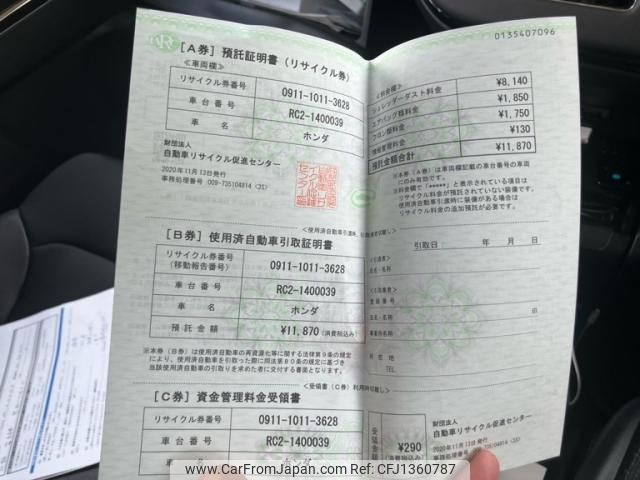 0135407096
[A券] 預託証明書 (リサイクル券)
≪車両欄≫
リサイクル券番号 0911-1011-3628
車台番号 RC2-1400039
車名 ホンダ
財団法人
自動車リサイクル促進センター
2020年11月13日発行
事務処理番号:009-735104814 <2S>
≪料金欄≫
シュレッダーダスト料金 ¥8,140
エアバッグ類料金 ¥1,850
フロン類料金 ¥1,750
情報管理料金 ¥130
預託金額合計 ¥11,870
※本券(A券)は車両欄記載の車台番号の車両
にのみ有効です。
※料金欄で「*****」と表示されている項目は
リサイクル料金が預託されていない装備です。
使用済自動車引渡時に装備がある場合は
リサイクル料金の追加預託が必要です。
[B券] 使用済自動車引取証明書
リサイクル券番号
(移動報告番号) 0911-1011-3628
車台番号 RC2-1400039
車名 ホンダ
預託金額 ¥11,870 (消費税込み)
※本券(B券)は使用済自動車の再資源化等に関する法律第9条の規定
により、使用済自動車を引取った際に同法第80条の規定に基づき
当該使用済自動車の引取りを求めた者に交付する書面となります。
引取日 年 月 日
氏名・名称
登録番号
氏名・名称 印
事業所名称
所在地
TEL.
<受領書(C券)利用時切離し>
[C券] 資金管理料金受領書
リサイクル券番号 0911-1011-3628
車台番号 RC2-1400039
車名 ホンダ
受領金額 ¥290
(消費税込み)
財団法人
自動車リサイクル促進センター
2020年11月13日発行
事務処理番号:009-735104814 <2S>
CarFromJapan.com - CFJ1360787